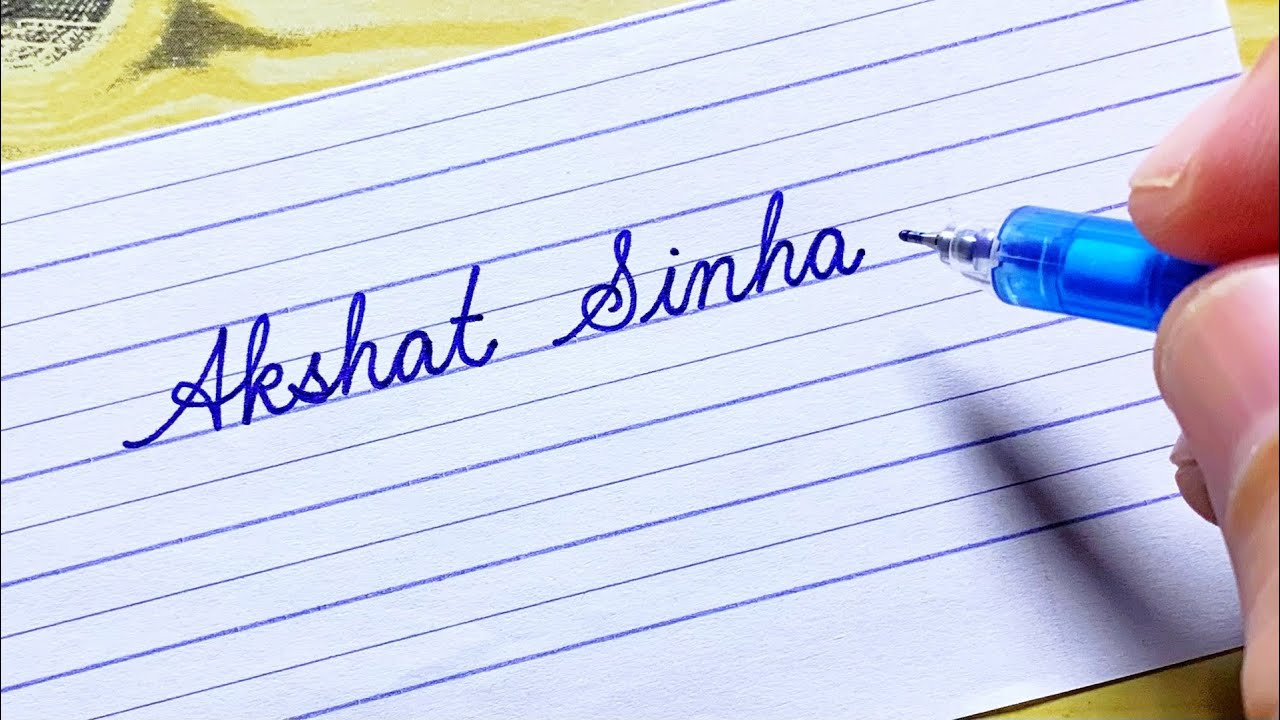 Akshat Sinha